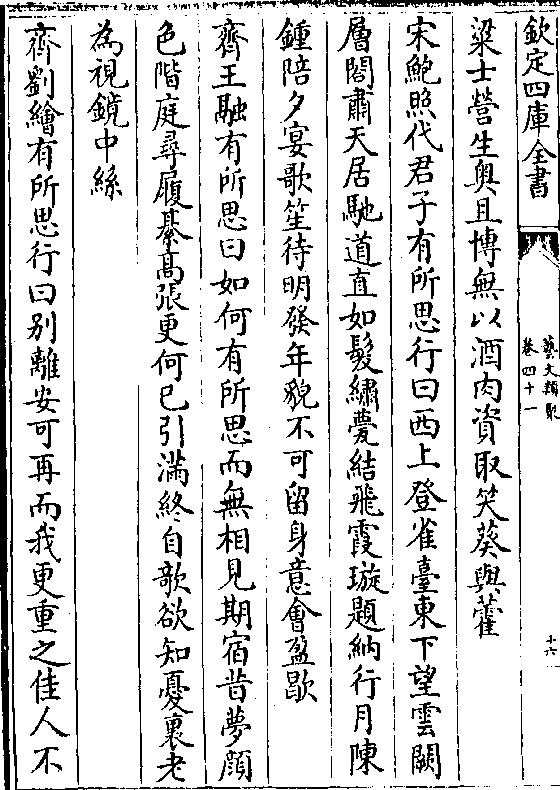 欽定四庫全書
藝文類聚
卷四十一
十六
粱士營生奥且博無以酒肉資取笑葵與藿
宋鮑照代君子有所思行曰西上登雀臺東下望雲闕
層閣肅天居馳道直如髮繡甍結飛霞璇題納行月陳
鍾陪夕宴歌笙待明發年貌不可留身意會盈歇
齊王融有所思曰如何有所思而無相見期宿昔夢顔
色階庭尋履綦髙張更何已引滿終自歌欲知憂裏老
為視鏡中絲
齊劉繪有所思行曰别離安可再而我更重之佳人不